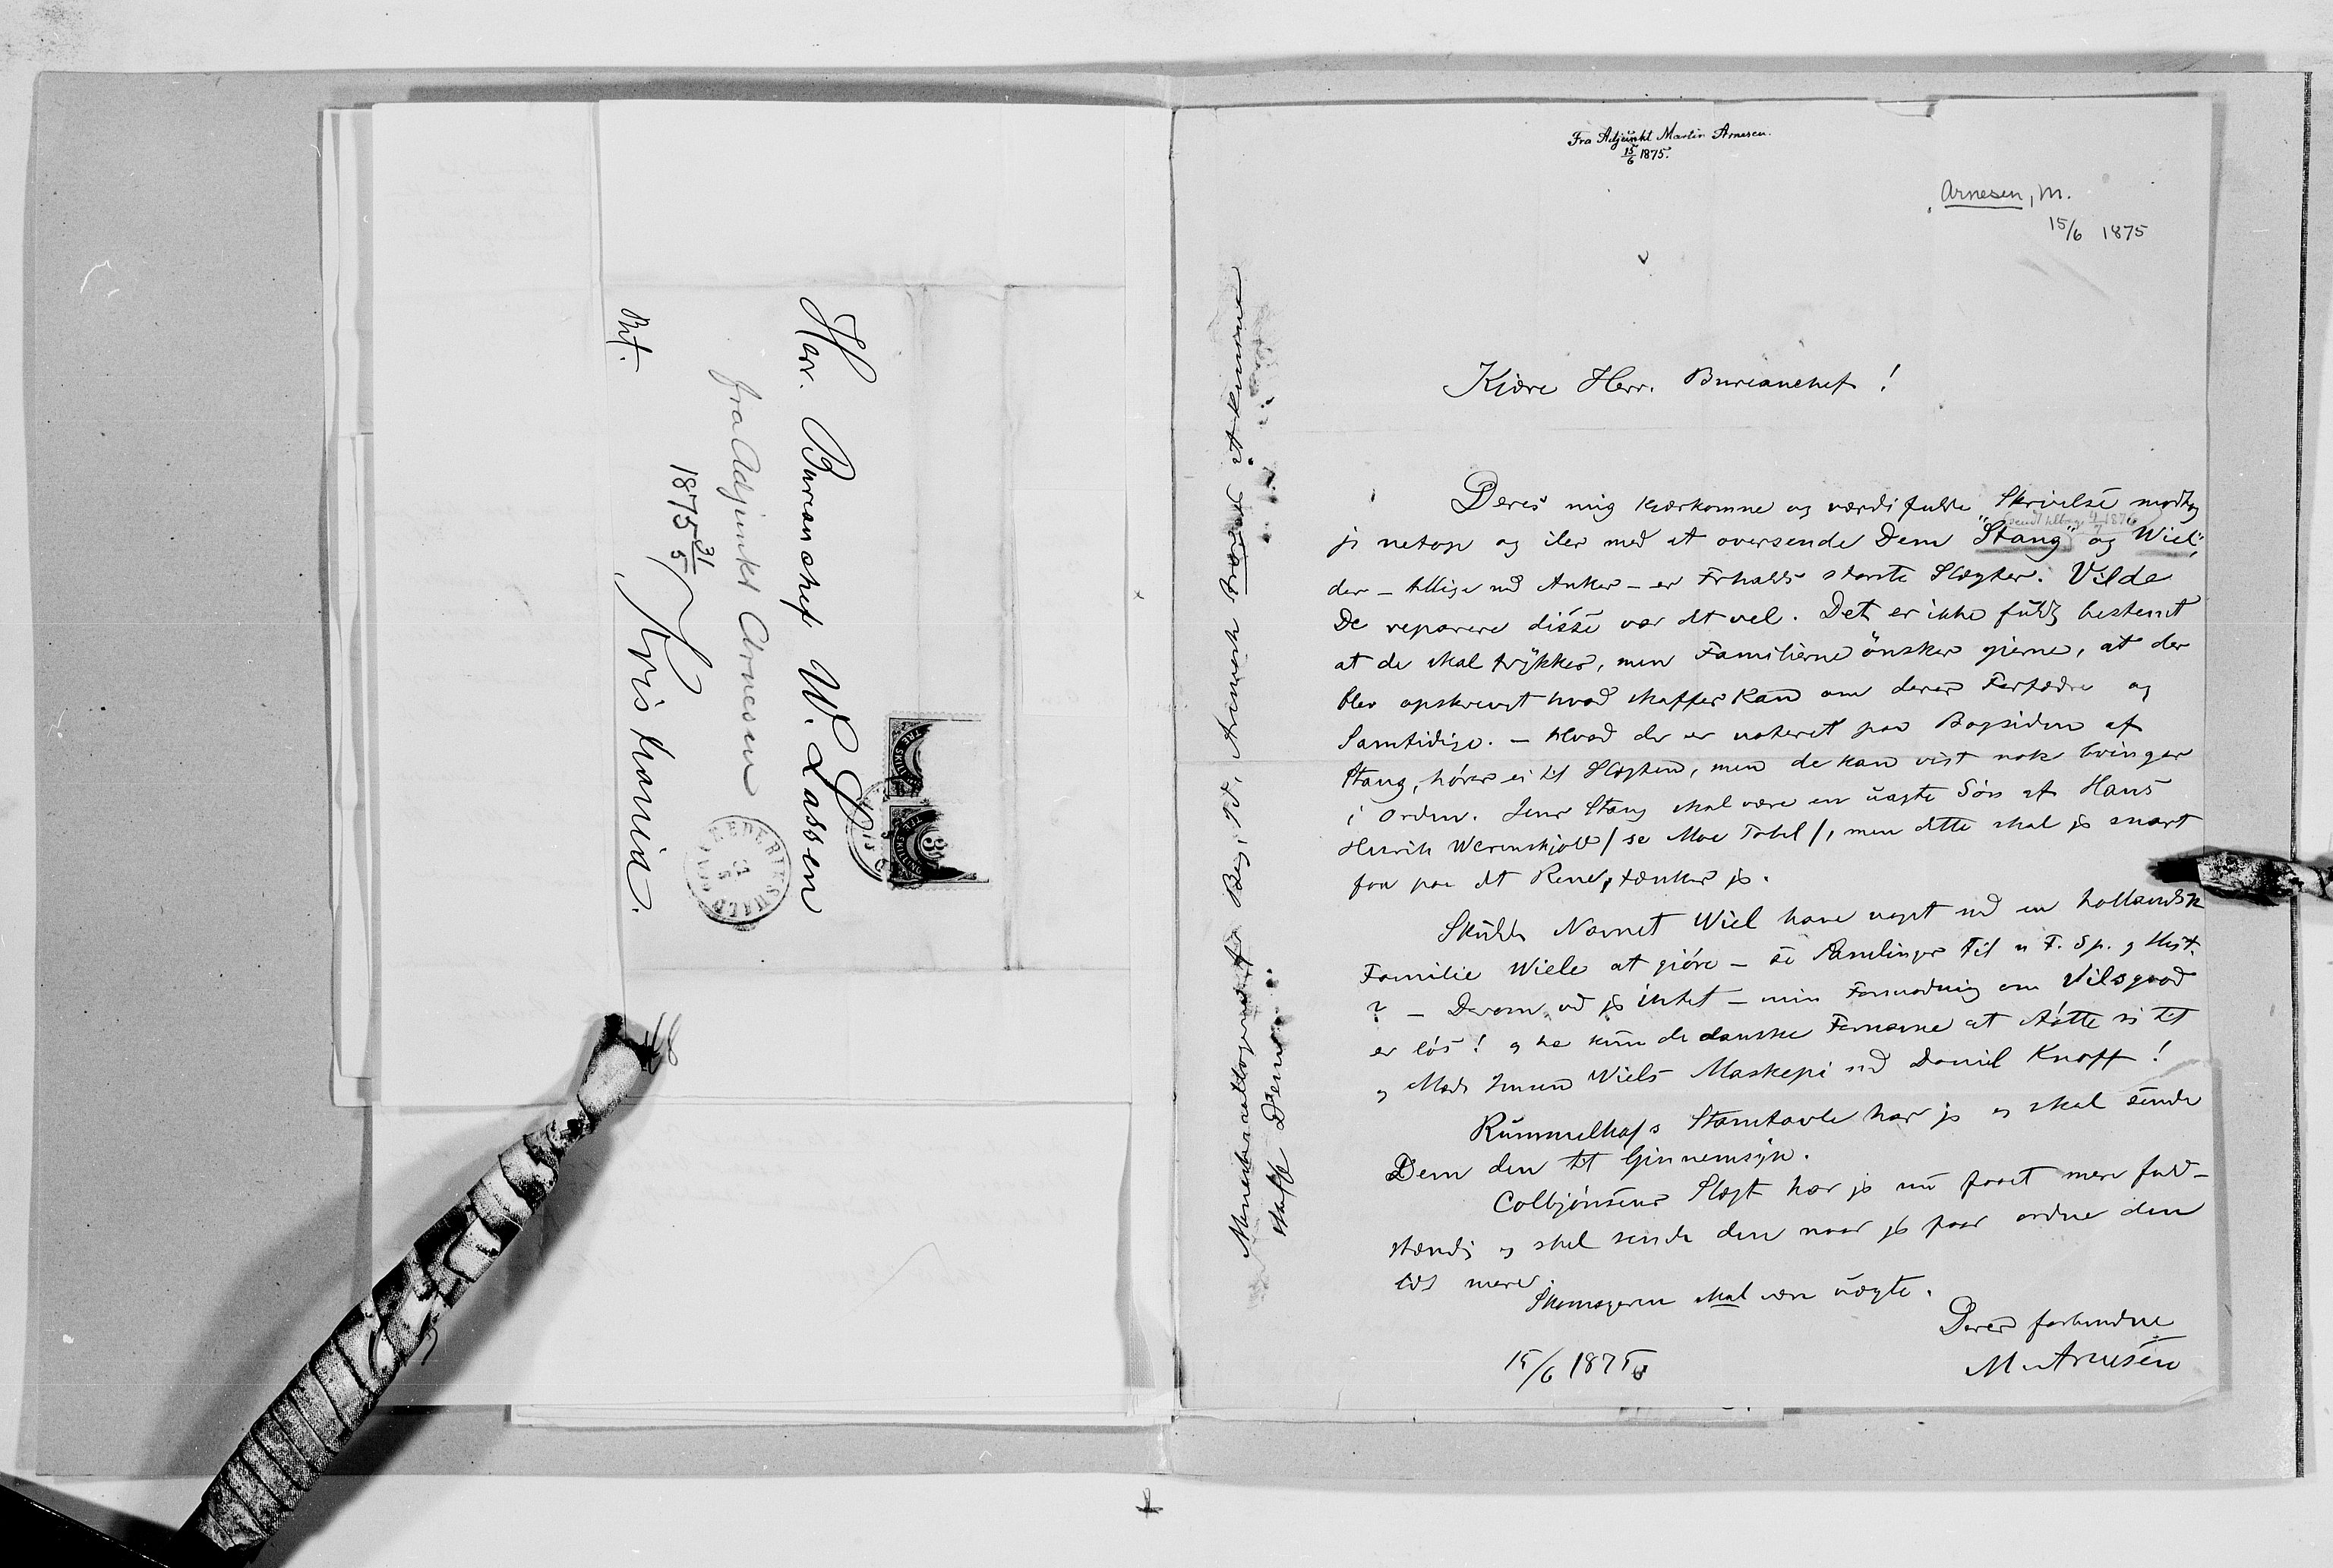 Herr. Bureauchef W. Lassen
fra Adjunkt Arnesen
1875 31/5
Kristiania.
Bet.
TRE SKILLING
3
FREDERIKSHALD
31
5
Fra Adjunkt Martin Arnesen.
15/6 1875.
Arnesen, M.
15/6 1875
Kjære Herr. Bureauchef!
Deres mig kærkomne og værdifulde Skrivelse modtog
sendt tilbage 1876
jg netop og iler med at oversende Dem "Stang" og "Wiel",
der - tillige md Anker - er Frhalds største Slægter. Vilde
De reparere disse var dt vel. Det er ikke fuldt bestemt
at de skal trykkes, men Familierne ønsker gierne, at der
blev opskrevet hvad skaffes kan om deres Forfædre og
Samtidige. - Hvad der er noteret paa Bagsiden af
Stang, hører ei til Slægten, men de kan vist nok bringes
i Orden. Jens Stang skal være en uægte Søn af Hans
Henrik Werenskjold / se Moe Tabel /, men dette skal jg snart
faa paa dt Rene, tænker jg.
Skulde Navnet Wiel have noget md en hollandsk
Familie Wiele at gjøre - se Samlinger til n F. Sp. og Hist.
? - Derom vd jg intet - min Formodning om Vilsgaard
er løs! og har kun de danske Fornavne at støtte sig til
og Mads Wiels Maskepi md Daniel Knoff!
Rummelhofs Stamtavle har jg og skal sende
Dem den til Gjennemsyn.
Colbjørnsens Slægt har jg nu faaet mere fuld-
stændig og skal sende den naar jg faar ordne den
lidt mere.
Skomageren skal være uægte.
Deres forbundne
M. Arnesen
15/6 1875
skaffe Dem